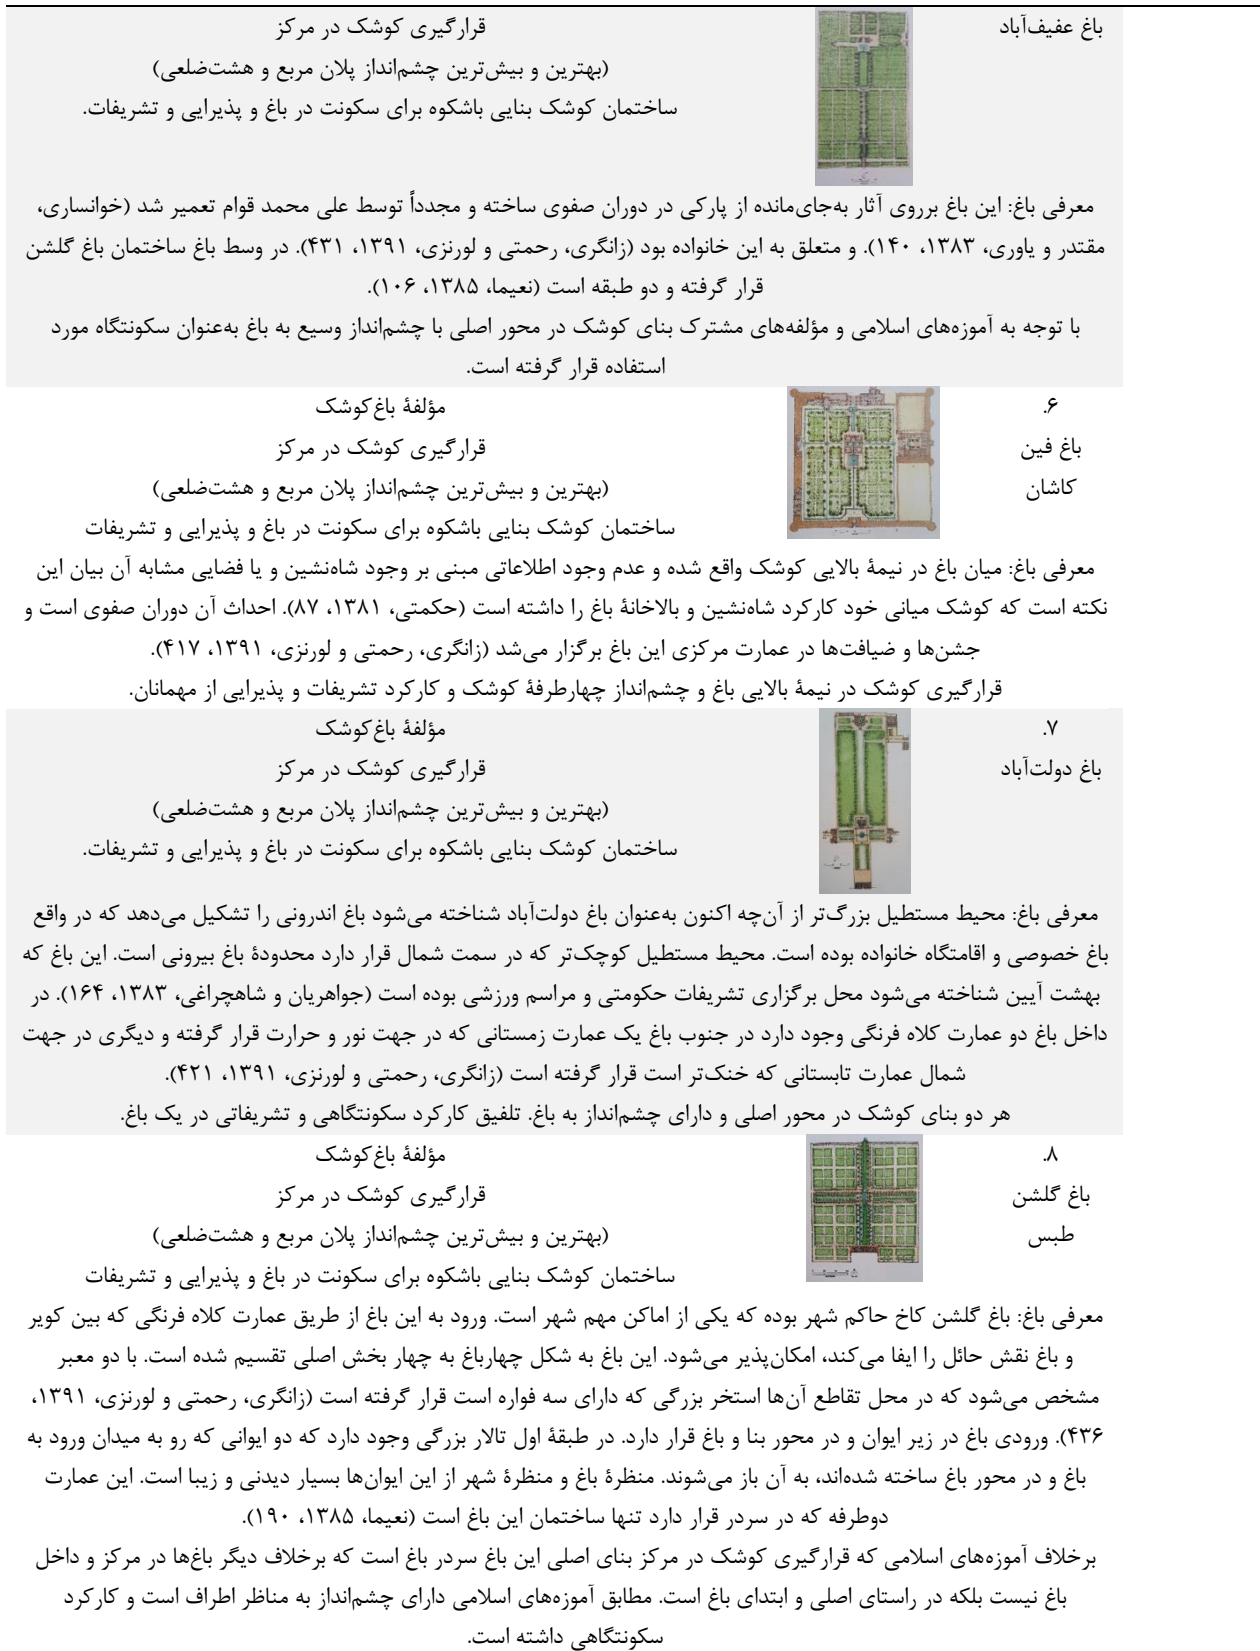 باغ عفیف‌آباد
قرارگیری کوشک در مرکز
(بهترین و بیش‌ترین چشم‌انداز پلان مربع و هشت‌ضلعی)
ساختمان کوشک بنایی باشکوه برای سکونت در باغ و پذیرایی و تشریفات.
معرفی باغ: این باغ برروی آثار به‌جای‌مانده از پارکی در دوران صفوی ساخته و مجدداً توسط علی محمد قوام تعمیر شد (خوانساری،
مقتدر و یاوری، ۱۳۸۳، ۱۴۰). و متعلق به این خانواده بود (زانگری، رحمتی و لورنزی، ۱۳۹۱، ۴۳۱). در وسط باغ ساختمان باغ گلشن
قرار گرفته و دو طبقه است (نعیما، ۱۳۸۵، ۱۰۶).
با توجه به آموزه‌های اسلامی و مؤلفه‌های مشترک بنای کوشک در محور اصلی با چشم‌انداز وسیع به باغ به‌عنوان سکونتگاه مورد
استفاده قرار گرفته است.
۶.
باغ فین
کاشان
مؤلفۀ باغ‌کوشک
قرارگیری کوشک در مرکز
(بهترین و بیش‌ترین چشم‌انداز پلان مربع و هشت‌ضلعی)
ساختمان کوشک بنایی باشکوه برای سکونت در باغ و پذیرایی و تشریفات
معرفی باغ: میان باغ در نیمۀ بالایی کوشک واقع شده و عدم وجود اطلاعاتی مبنی بر وجود شاه‌نشین و یا فضایی مشابه آن بیان این
نکته است که کوشک میانی خود کارکرد شاه‌نشین و بالاخانۀ باغ را داشته است (حکمتی، ۱۳۸۱، ۸۷). احداث آن دوران صفوی است و
جشن‌ها و ضیافت‌ها در عمارت مرکزی این باغ برگزار می‌شد (زانگری، رحمتی و لورنزی، ۱۳۹۱، ۴۱۷).
قرارگیری کوشک در نیمۀ بالایی باغ و چشم‌انداز چهارطرفۀ کوشک و کارکرد تشریفات و پذیرایی از مهمانان.
۷.
باغ دولت‌آباد
مؤلفۀ باغ‌کوشک
قرارگیری کوشک در مرکز
(بهترین و بیش‌ترین چشم‌انداز پلان مربع و هشت‌ضلعی)
ساختمان کوشک بنایی باشکوه برای سکونت در باغ و پذیرایی و تشریفات.
معرفی باغ: محیط مستطیل بزرگ‌تر از آن‌چه اکنون به‌عنوان باغ دولت‌آباد شناخته می‌شود باغ اندرونی را تشکیل می‌دهد که در واقع
باغ خصوصی و اقامتگاه خانواده بوده است. محیط مستطیل کوچک‌تر که در سمت شمال قرار دارد محدودۀ باغ بیرونی است. این باغ که
بهشت آیین شناخته می‌شود محل برگزاری تشریفات حکومتی و مراسم ورزشی بوده است (جواهریان و شاهچراغی، ۱۳۸۳، ۱۶۴). در
داخل باغ دو عمارت کلاه فرنگی وجود دارد در جنوب باغ یک عمارت زمستانی که در جهت نور و حرارت قرار گرفته و دیگری در جهت
شمال عمارت تابستانی که خنک‌تر است قرار گرفته است (زانگری، رحمتی و لورنزی، ۱۳۹۱، ۴۲۱).
هر دو بنای کوشک در محور اصلی و دارای چشم‌انداز به باغ. تلفیق کارکرد سکونتگاهی و تشریفاتی در یک باغ.
۸.
باغ گلشن
طبس
مؤلفۀ باغ‌کوشک
قرارگیری کوشک در مرکز
(بهترین و بیش‌ترین چشم‌انداز پلان مربع و هشت‌ضلعی)
ساختمان کوشک بنایی باشکوه برای سکونت در باغ و پذیرایی و تشریفات
معرفی باغ: باغ گلشن کاخ حاکم شهر بوده که یکی از اماکن مهم شهر است. ورود به این باغ از طریق عمارت کلاه فرنگی که بین کویر
و باغ نقش حائل را ایفا می‌کند، امکان‌پذیر می‌شود. این باغ به شکل چهارباغ به چهار بخش اصلی تقسیم شده است. با دو معبر
مشخص می‌شود که در محل تقاطع آن‌ها استخر بزرگی که دارای سه فواره است قرار گرفته است (زانگری، رحمتی و لورنزی، ۱۳۹۱،
۴۳۶). ورودی باغ در زیر ایوان و در محور بنا و باغ قرار دارد. در طبقۀ اول تالار بزرگی وجود دارد که دو ایوانی که رو به میدان ورود به
باغ و در محور باغ ساخته شده‌اند، به آن باز می‌شوند. منظرۀ باغ و منظرۀ شهر از این ایوان‌ها بسیار دیدنی و زیبا است. این عمارت
دوطرفه که در سردر قرار دارد تنها ساختمان این باغ است (نعیما، ۱۳۸۵، ۱۹۰).
برخلاف آموزه‌های اسلامی که قرارگیری کوشک در مرکز بنای اصلی این باغ سردر باغ است که برخلاف دیگر باغ‌ها در مرکز و داخل
باغ نیست بلکه در راستای اصلی و ابتدای باغ است. مطابق آموزه‌های اسلامی دارای چشم‌انداز به مناظر اطراف است و کارکرد
سکونتگاهی داشته است.